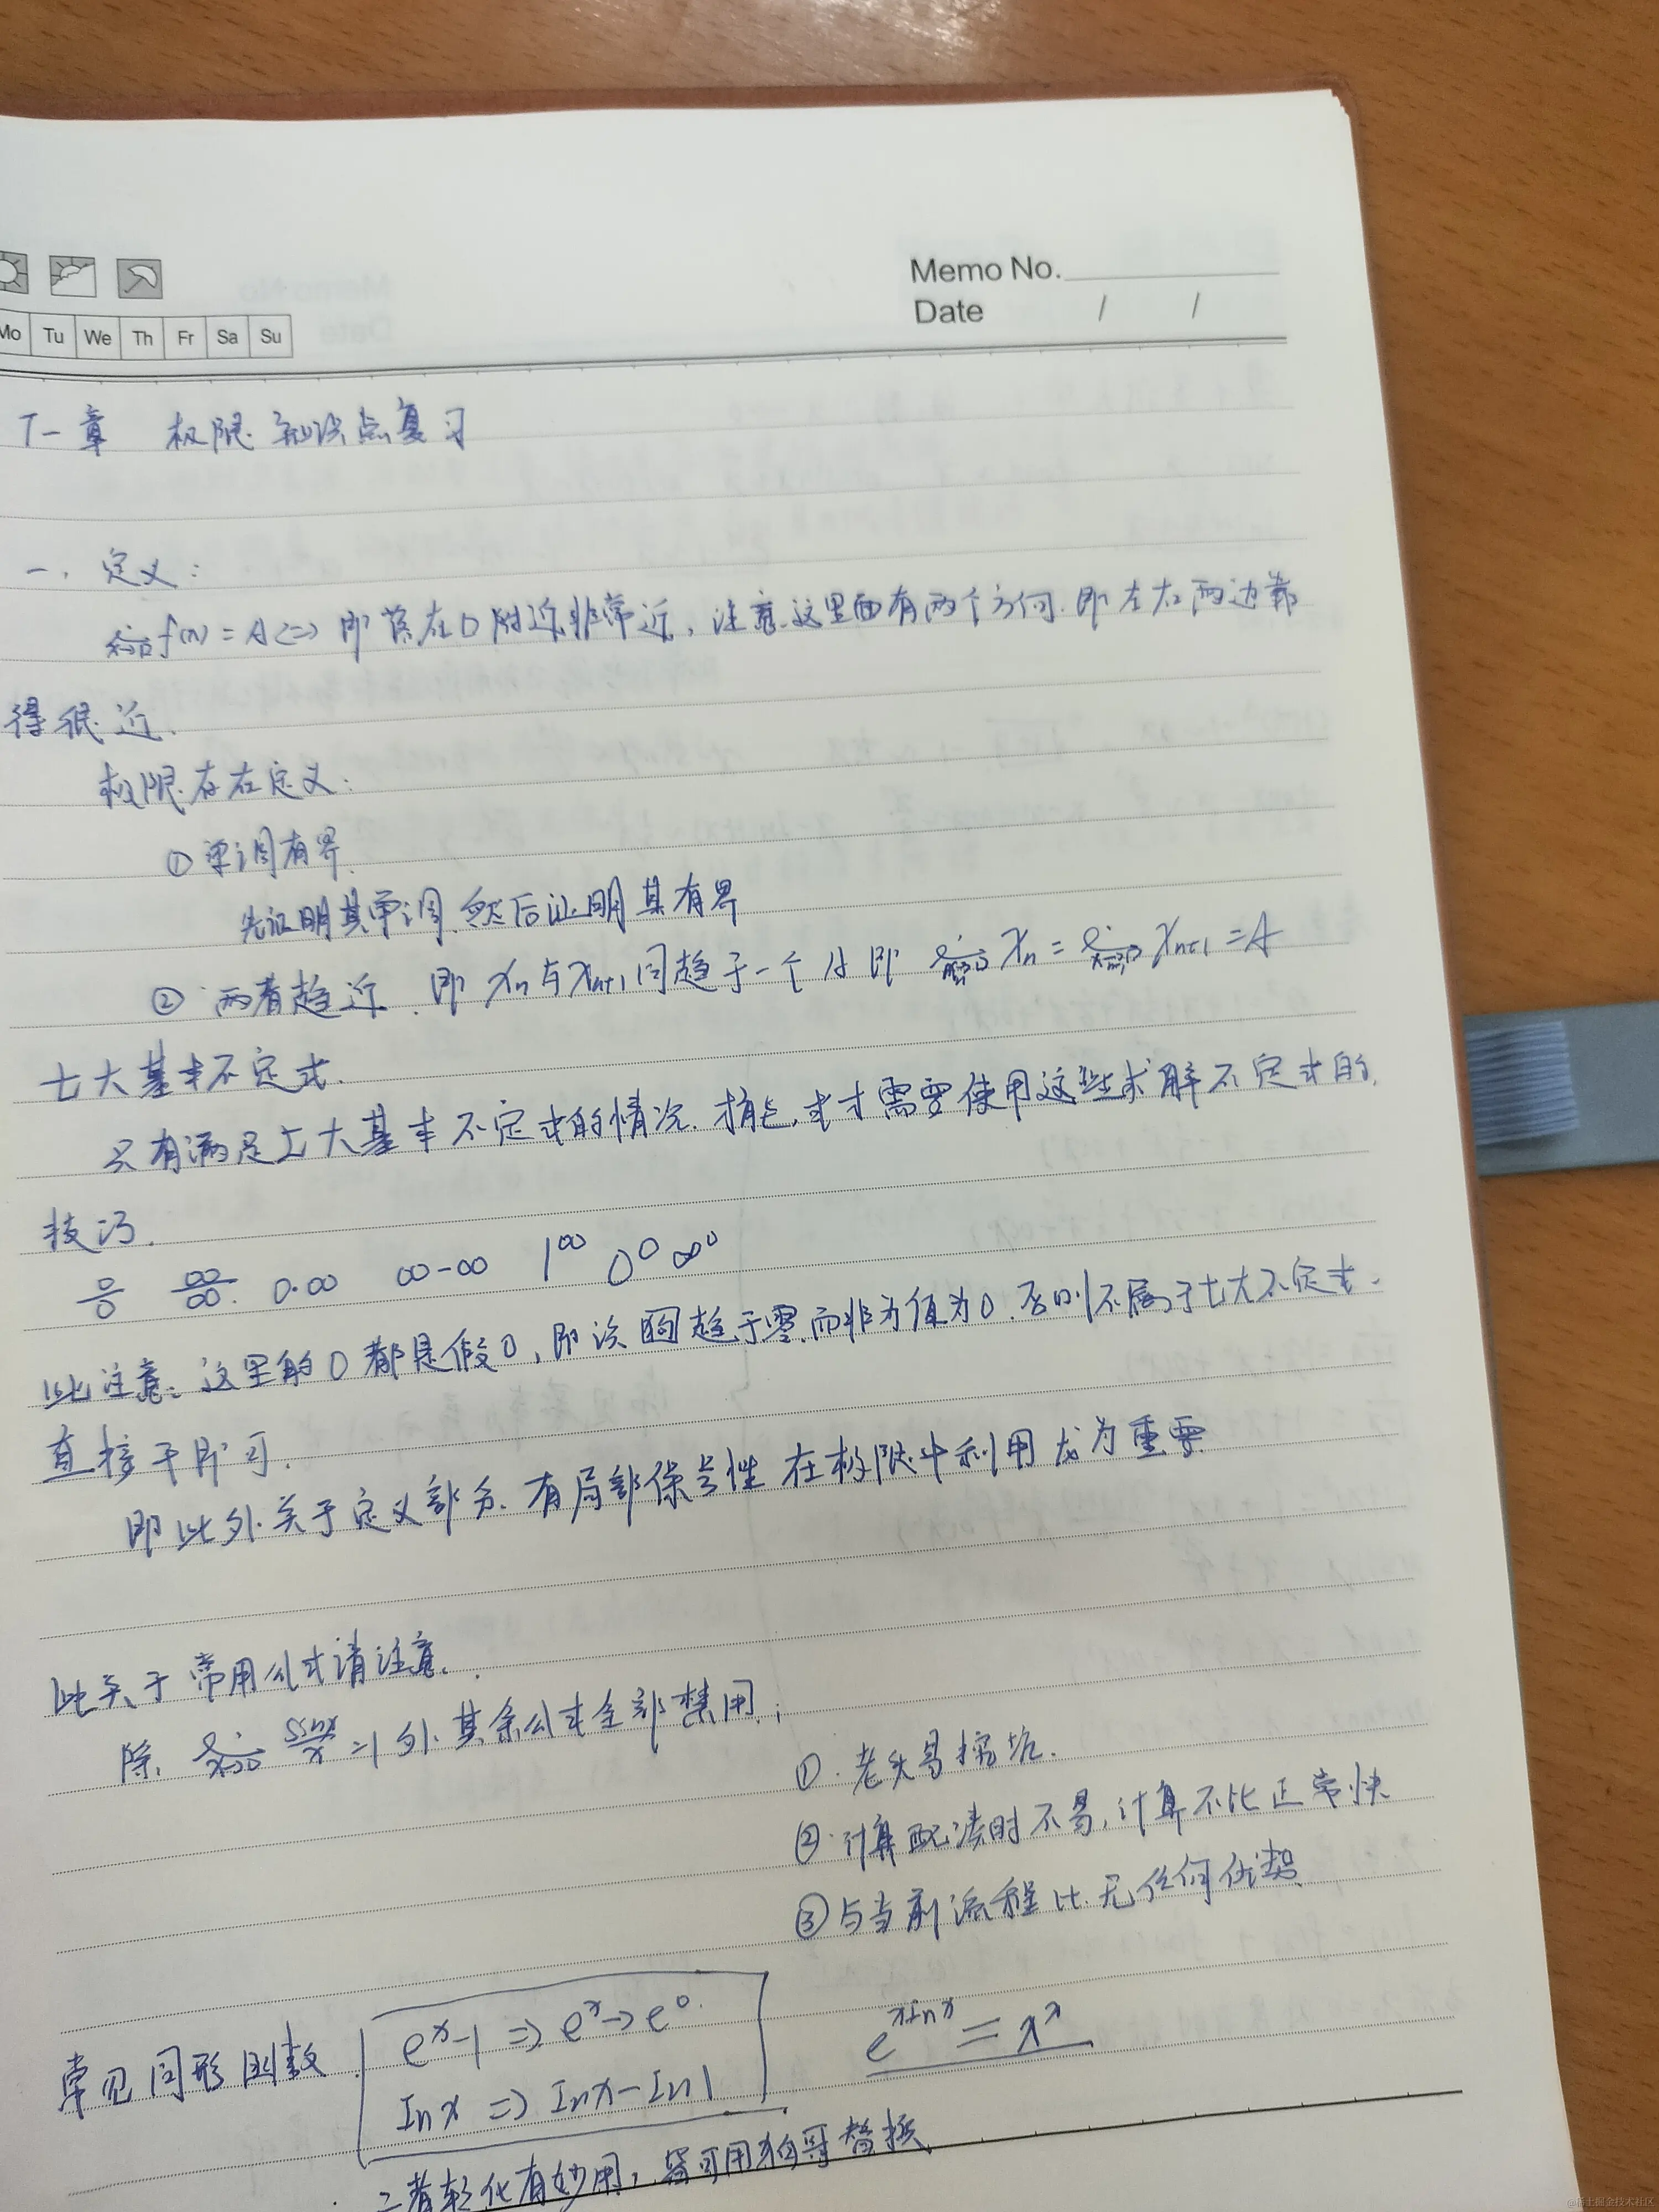 Memo No.
Date / /
Mo Tu We Th Fr Sa Su
一章 极限知识点复习
一、定义:
f(x)=A<=>即落在0附近非常近,注意这里面有两个方向.即左右两边靠
得很近.
极限存在定义:
①单调有界.
先证明其单调,然后证明其有界
②两者趋近.即 Xn与Xn+1同趋于一个A即 lim Xn = lim Xn+1 = A
七大基本不定式.
只有满足七大基本不定式的情况.才需要使用这些求解不定式的
技巧.
0/0 ∞/∞ 0·∞ ∞-∞ 1^∞ 0^0 ∞^0
此注意:这里的0都是假0,即该趋于零.而非为值为0.否则不属于七大不定式.
直接干即可.
即此外关于定义部分.有局部保号性在极限中利用尤为重要
此关于常用公式请注意.
除. lim x→0 sinx/x =1外.其余公式全部禁用;
①.老头易挖坑.
②.计算配凑时不易,计算不比正常快
③与当前流程比.无任何优势.
常见同形函数.
e^x-1 => e^x→e^0.
lnx => lnx-ln1
e^xlnx = x^x
二者转化有妙用,皆可用拉哥替换
@稀土掘金技术社区